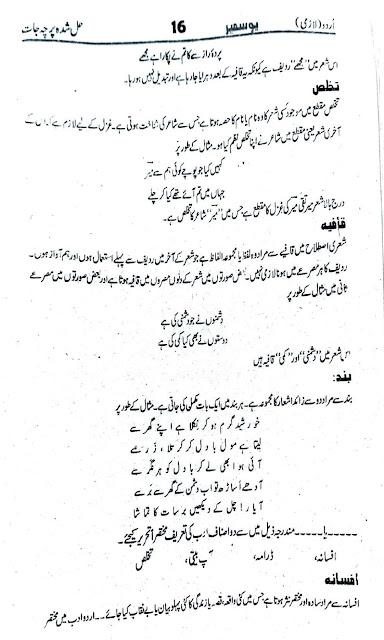 اُردو (لازمی) یوسفیز 16 حل شدہ پرچہ جات
پردۂ راز سے کا تم نے پکارا ہے مجھے
اس شعر میں "مجھے" ردیف ہے کیونکہ یہ قافیہ کے بعد دہرایا جارہا ہے اور تبدیل نہیں ہو رہا۔
تخلص
تخلص مقطع میں موجود کسی شعر کا وہ نام یا نام کا حصہ ہوتا ہے جس سے شاعر کی شناخت ہوتی ہے۔ غزل کے لیے لازم ہے کہ اس کے
آخری شعر یعنی مقطع میں شاعر نے اپنا تخلص نظم کیا ہو۔ مثال کے طور پر
کہیں کیا جو پوچھے کوئی ہم سے میرؔ
جہاں میں تم آئے تھے کیا کر چلے
درج بالا شعر میر تقی میر کی غزل کا مقطع ہے جس میں "میر" شاعر کا تخلص ہے۔
قافیہ
شعری اصطلاح میں قافیے سے مراد وہ لفظ یا مجموعہ الفاظ ہے جو شعر کے آخر میں ردیف سے پہلے استعمال ہوں اور ہم آواز ہوں۔
ردیف کا ہر مصرعے میں ہونا لازمی نہیں۔ بعض صورتوں میں شعر کے دونوں مصروں میں قافیہ ہوتا ہے اور بعض صورتوں میں مصرعے
ثانی میں مثال کے طور پر
دشمنوں نے جو دشمنی کی ہے
دوستوں نے بھی کیا کمی کی ہے
اس شعر میں "دشمنی" اور "کمی" قافیہ ہیں
بند:
بند سے مراد دو سے زائد اشعار کا مجموعہ ہے۔ ہر بند میں ایک بات مکمل کی جاتی ہے۔ مثال کے طور پر
خورشید گرم ہو کر نکلا ہے اپنے گھر سے
لیتا ہے مول بادل کر کر تلاش زر سے
آئی ہوا بھی لے کر بادل کو ہر نگر سے
آدھے اساڑھ تو اب دشمن کے گھر سے برسے
آ یار! چل کے دیکھیں برسات کا تماشا
۔۔۔۔۔یا۔۔۔۔۔ مندرجہ ذیل میں سے دو اصناف ادب کی تعریف مختصراً تحریر کیجئے۔
افسانہ، ڈرامہ، آپ بیتی، تخلص
افسانہ
افسانہ سے مراد سادہ اور مختصر نثر ہوتا ہے جس میں کئی واقعہ، قصہ۔ یا زندگی کا کئی پہلو بیان یا بے نقاب کیا جائے۔۔۔ اردو ادب میں مختصر